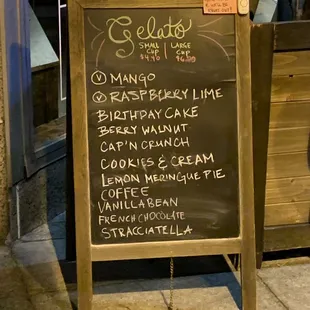 Gelato
SMALL CUP LARGE CUP
Ⓥ MANGO
Ⓥ RASPBERRY LIME
BIRTHDAY CAKE
BERRY WALNUT
CAP'N CRUNCH
COOKIES & CREAM
LEMON MERINGUE PIE
COFFEE
VANILLA BEAN
FRENCH CHOCOLATE
STRACCIATELLA